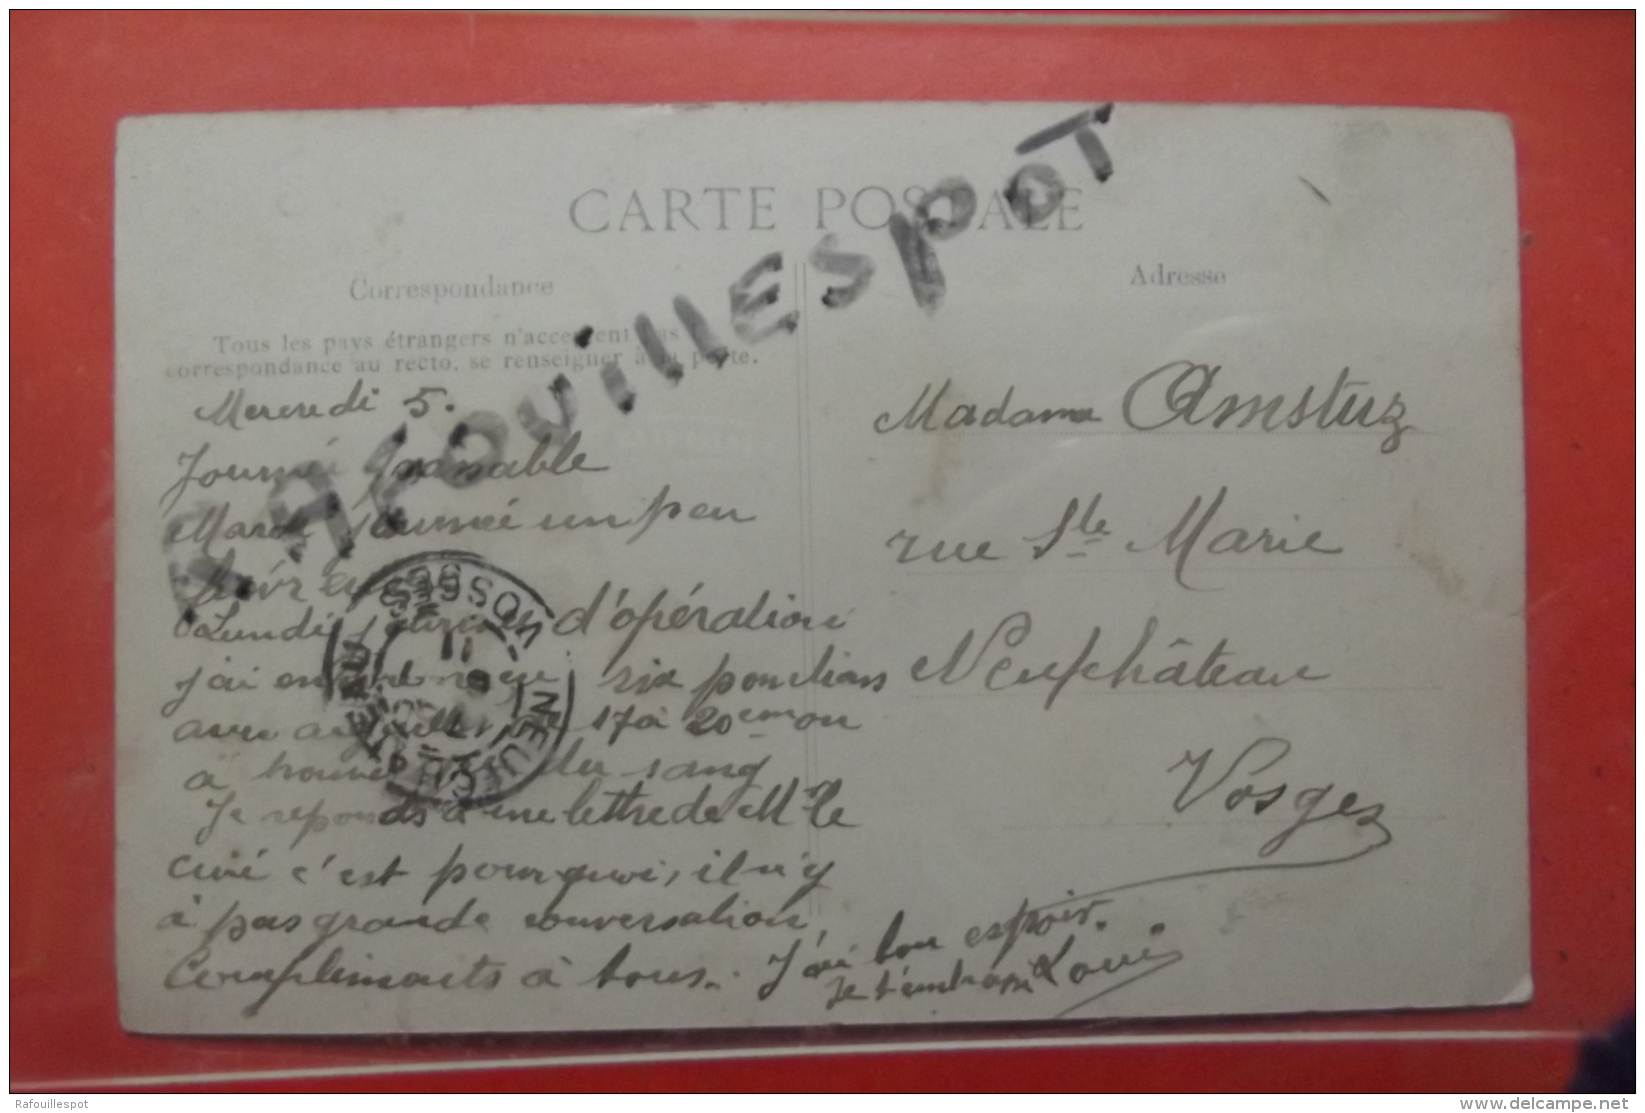 CARTE POSTALE
Correspondance
Tous les pays étrangers n'acceptent pas
correspondance au recto, se renseigner à la poste.
Mercredi 5.
Journée passable
Mardi journée un peu

Lundi d'opération
j'ai six ponctions
avec 17 à 20 cm on
a du sang
Je reponds à une lettre de Mr le
curé c'est pourquoi, il n'y
à pas grande conversation
Compliments à tous. J'ai bon espoir.
Je t'embrasse Louis
Adresse
Madame Amstuz
rue Ste Marie
Neufchâteau
Vosges
RAFOUILLESPOT
NEUFCHATEAU VOSGES
Rafouillespot
www.delcampe.net